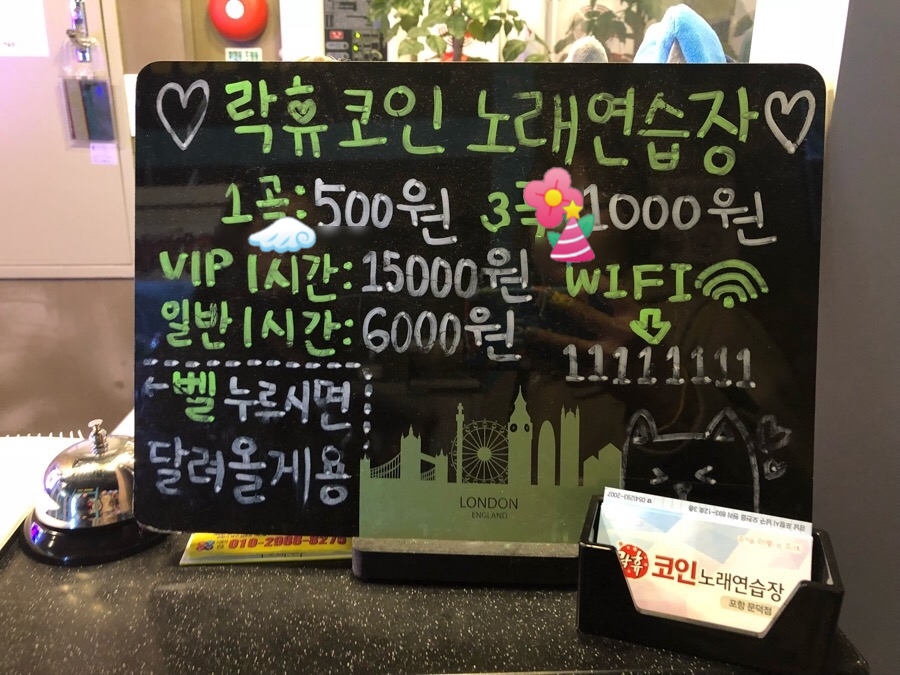 락휴 코인 노래연습장
1곡: 500원 1000원
VIP 1시간: 15000원
일반 1시간: 6000원
WIFI
11111111
벨 누르시면
달려올게용
LONDON
ENGLAND
락휴 코인노래연습장
포항 문덕점